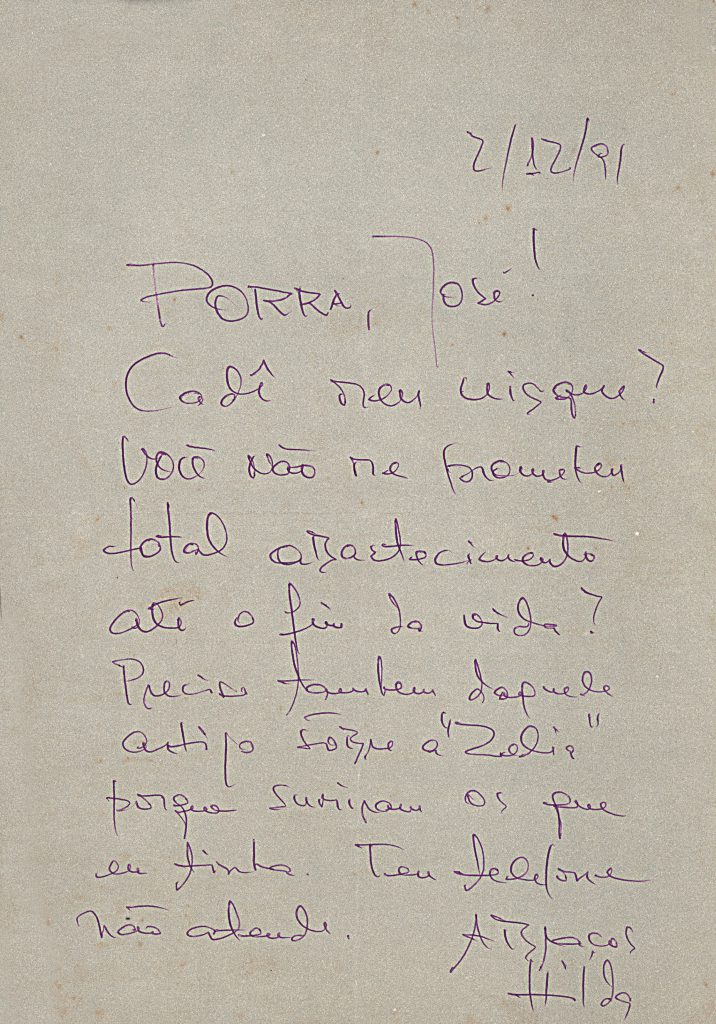 2/12/91
PORRA, José!
Cadê meu uisque?
Você não me prometeu
total abastecimento
até o fim da vida?
Preciso tambem daquele
artigo sôbre a "Zelia"
porque sumiram os que
eu tinha. Teu telefone
não atende. Abraços
Hilda